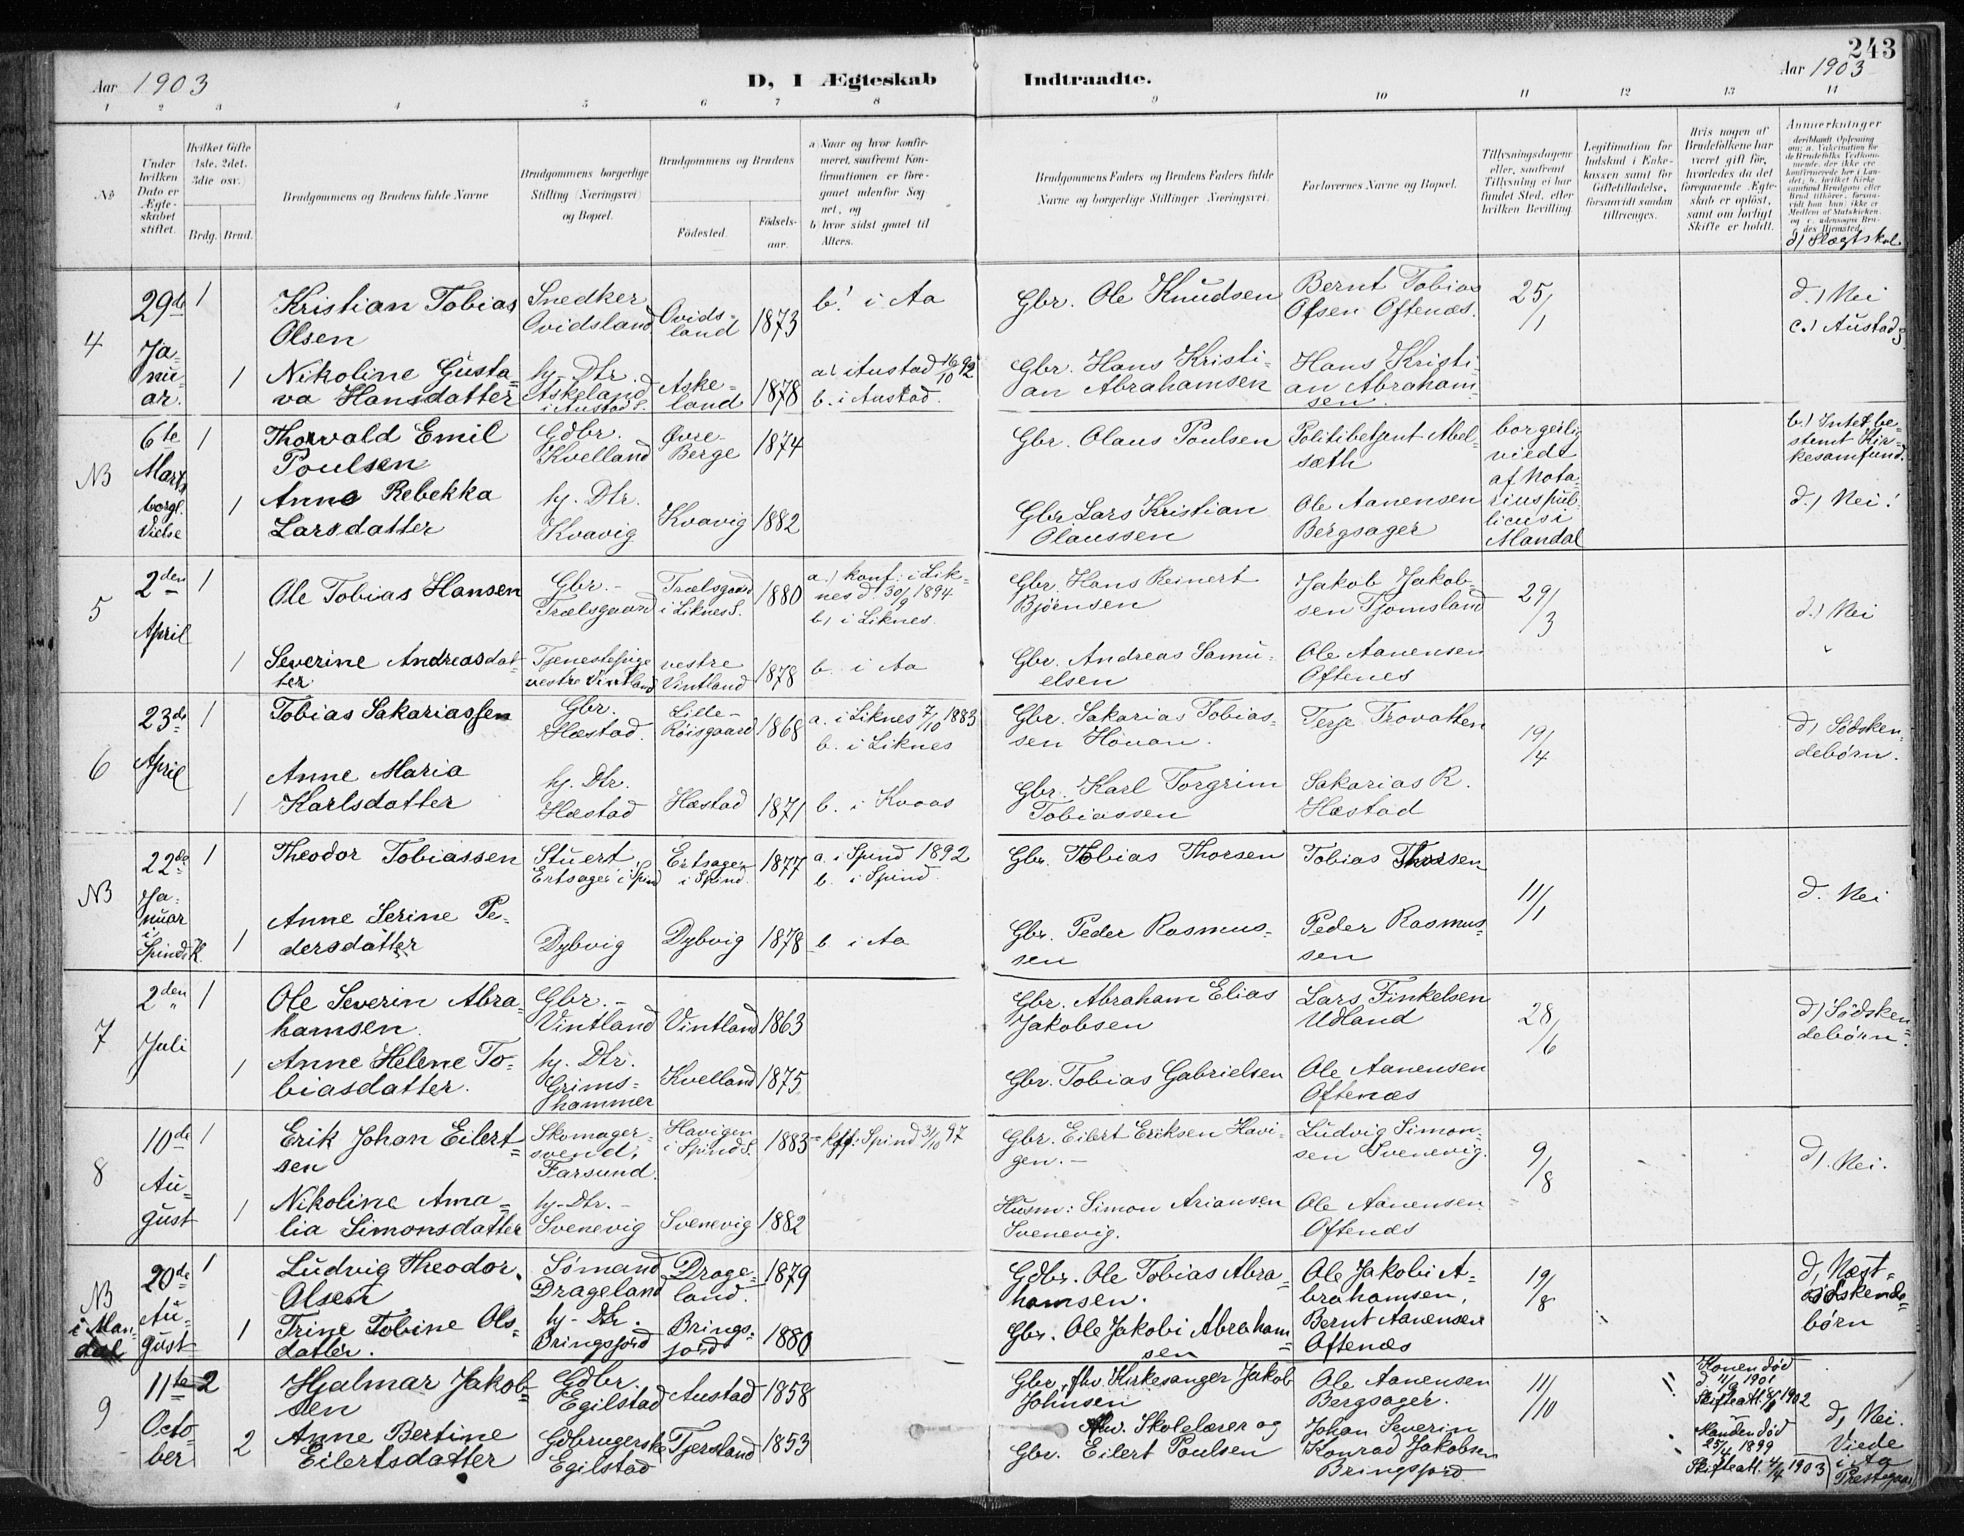 243
Aar 1903
D, I Ægteskab Indtraadte.
Aar 1903
1 2 3 4 5 6 7 8 9 10 11 12 13 14
No
Under hvilken Dato er Ægteskabet stiftet.
Hvilket Gifte 1ste, 2det, 3die osv.)
Brdg. Brud.
Brudgommens og Brudens fulde Navne
Brudgommens borgerlige Stilling (Næringsvei) og Bopæl.
Brudgommens og Brudens
Fødested. Fødselsaar.
a Naar og hvor konfirmeret, saafremt Konfirmationen er foregaaet udenfor Sognet, og
b hvor sidst gaaet til Alters.
Brudgommens Faders og Brudens Faders fulde Navne og borgerlige Stillinger Næringsvei).
Forlovernes Navne og Bopæl.
Tillysningsdagene eller, saafremt Tillysning ei har fundet Sted, efter hvilken Bevilling.
Legitimation for Indskud i Enkekassen samt for Giftetilladelse, forsaavidt saadan tiltrænges.
Hvis nogen af Brudefolkene har været gift før, hvorledes da det foregaaende Ægteskab er opløst, samt om lovligt Skifte er holdt.
Anmerkninger
d) Slægtskab
4
29de Januar.
1
Kristian Tobias Olsen
Snedker Ovidsland
Ovidsland
1873
b! i Aa
Gbr. Ole Knudsen
Bernt Tobias Olsen Oftenæs.
25/1
d.) Nei
c.) Austad S.
1
Nikoline Gustava Hansdatter
hj. Dtr. Askeland i Austad S.
Askeland
1878
a! i Austad 16/10 92
b. i Austad.
Gbr. Hans Kristian Abrahamsen
Hans Kristian Abrahamsen.
NB
6te Marts borgl. Vielse
1
Thorvald Emil Poulsen
Gdbr. Kvelland
Øvre-Berge
1874
Gbr. Olaus Poulsen
Politibetjent Abelsæth
borgerlig viedt af Notarius publicus i Mandal
b.) Intet bestemt Kirkesamfund.
1
Anne Rebekka Larsdatter
hj. Dtr. Kvavig
Kvavig
1882
Gbr Lars Kristian Olaussen
Ole Aanensen Bergsager
d.) Nei!
5
2den April
1
Ole Tobias Hansen
Gbr. - Trælsgaard
Trælsgaard i Liknes S.
1880
a.) konf. i Liknes d 30/9 1894
b) i Liknes.
Gbr. Hans Reinert Bjørnsen
Jakob Jakobsen Tjomsland
29/3
d.) Nei
1
Severine Andreasdatter
Tjenestepige vestre Vintland
vestre Vintland
1878
b. i Aa
Gbr. Andreas Samuelsen
Ole Aanensen Oftenes
6
23de April
1
Tobias Sakariassen
Gbr. Hæstad.
Lille-Røisgaard
1868
a. i Liknes 7/10 1883
b. i Liknes
Gbr. Sakarias Tobiassen Hovan.
Terje Trovatten
19/4
d) Sødskendebørn.
1
Anne Maria Karlsdatter
hj. Dtr. Hæstad
Hæstad
1871
b. i Kvaas
Gbr. Karl Torgrim Tobiassen
Sakarias R. Hæstad
NB
22de Januar i Spinds K.
1
Theodor Tobiassen
Stuert Ertsager i Spind
Ertsager i Spind.
1877
a. i Spind 1892
b. i Spind.
Gbr. Tobias Thorsen
Tobias Thorsen
11/1
d. Nei
1
Anne Serine Pedersdatter
Dybvig
Dybvig
1878
b. i Aa
Gbr. Peder Rasmussen
Peder Rasmussen
7
2den Juli
1
Ole Severin Abrahamsen.
Gbr. - Vintland
Vintland
1863
Gbr. Abraham Elias Jakobsen
Lars Finkelsen Udland
28/6
d) Sødskendebørn.
1
Anne Helene Tobiasdatter.
hj. Dtr. Grimshammer
Kvelland
1875
Gbr. Tobias Gabrielsen
Ole Aanensen Oftenæs
8
10de August
1
Erik Johan Eilertsen
Skomagersvend, Farsund.
Havigen i Spind S.
1883
kff: Spind 31/10 97
Gbr. Eilert Eriksen Havigen. -
Ludvig Simonsen Svenevig.
9/8
d). Nei.
1
Nikoline Amalia Simonsdatter
hj. Dtr. - Svenevig
Svenevig
1882
Husm: Simon Ariansen Svenevig.
Ole Aanensen Oftenæs
NB i Mandal
20de August
1
Ludvig Theodor Olsen
Sømand Drageland
Drageland.
1879
Gdbr. Ole Tobias Abrahamsen.
Ole Jakobi Abrahamsen,
19/8
d) Næstsødskendebørn
1
Trine Tobine Olsdatter.
hj. Dtr. Bringsjord
Bringsjord
1880
Gbr. Ole Jakobi Abrahamsen
Bernt Aanensen Oftenæs
9
11te October
2
Hjalmar Jakobsen
Gdbr. Egilstad
Austad
1858
Gbr. fhv. Kirkesanger Jakob Johnsen
Ole Aanensen Bergsager.
11/10
Konen død 1901
Skifteatt. 1902
d) Nei.
2
Anne Bertine Eilertsdatter
Gdbrugerske Egilstad
Tjersland
1853
fhv. Skolelærer og Gbr. Eilert Poulsen
Johan Severin Konrad Jakobsen Bringsjord
Manden død 25/4 1899
Skifteatt. 4/4 1903
Viede i Aa Prestegaard